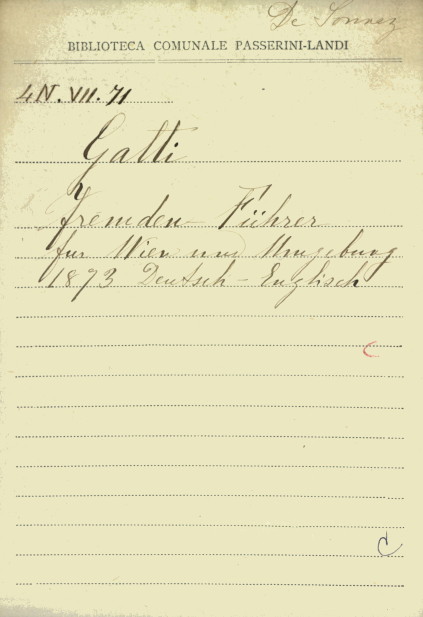 BIBLIOTECA COMUNALE PASSERINI-LANDI
4N.VII.71
Gatti
Fremden-Führer
für Wien und Umgebung
1873 Deutsch-Englisch
C
C